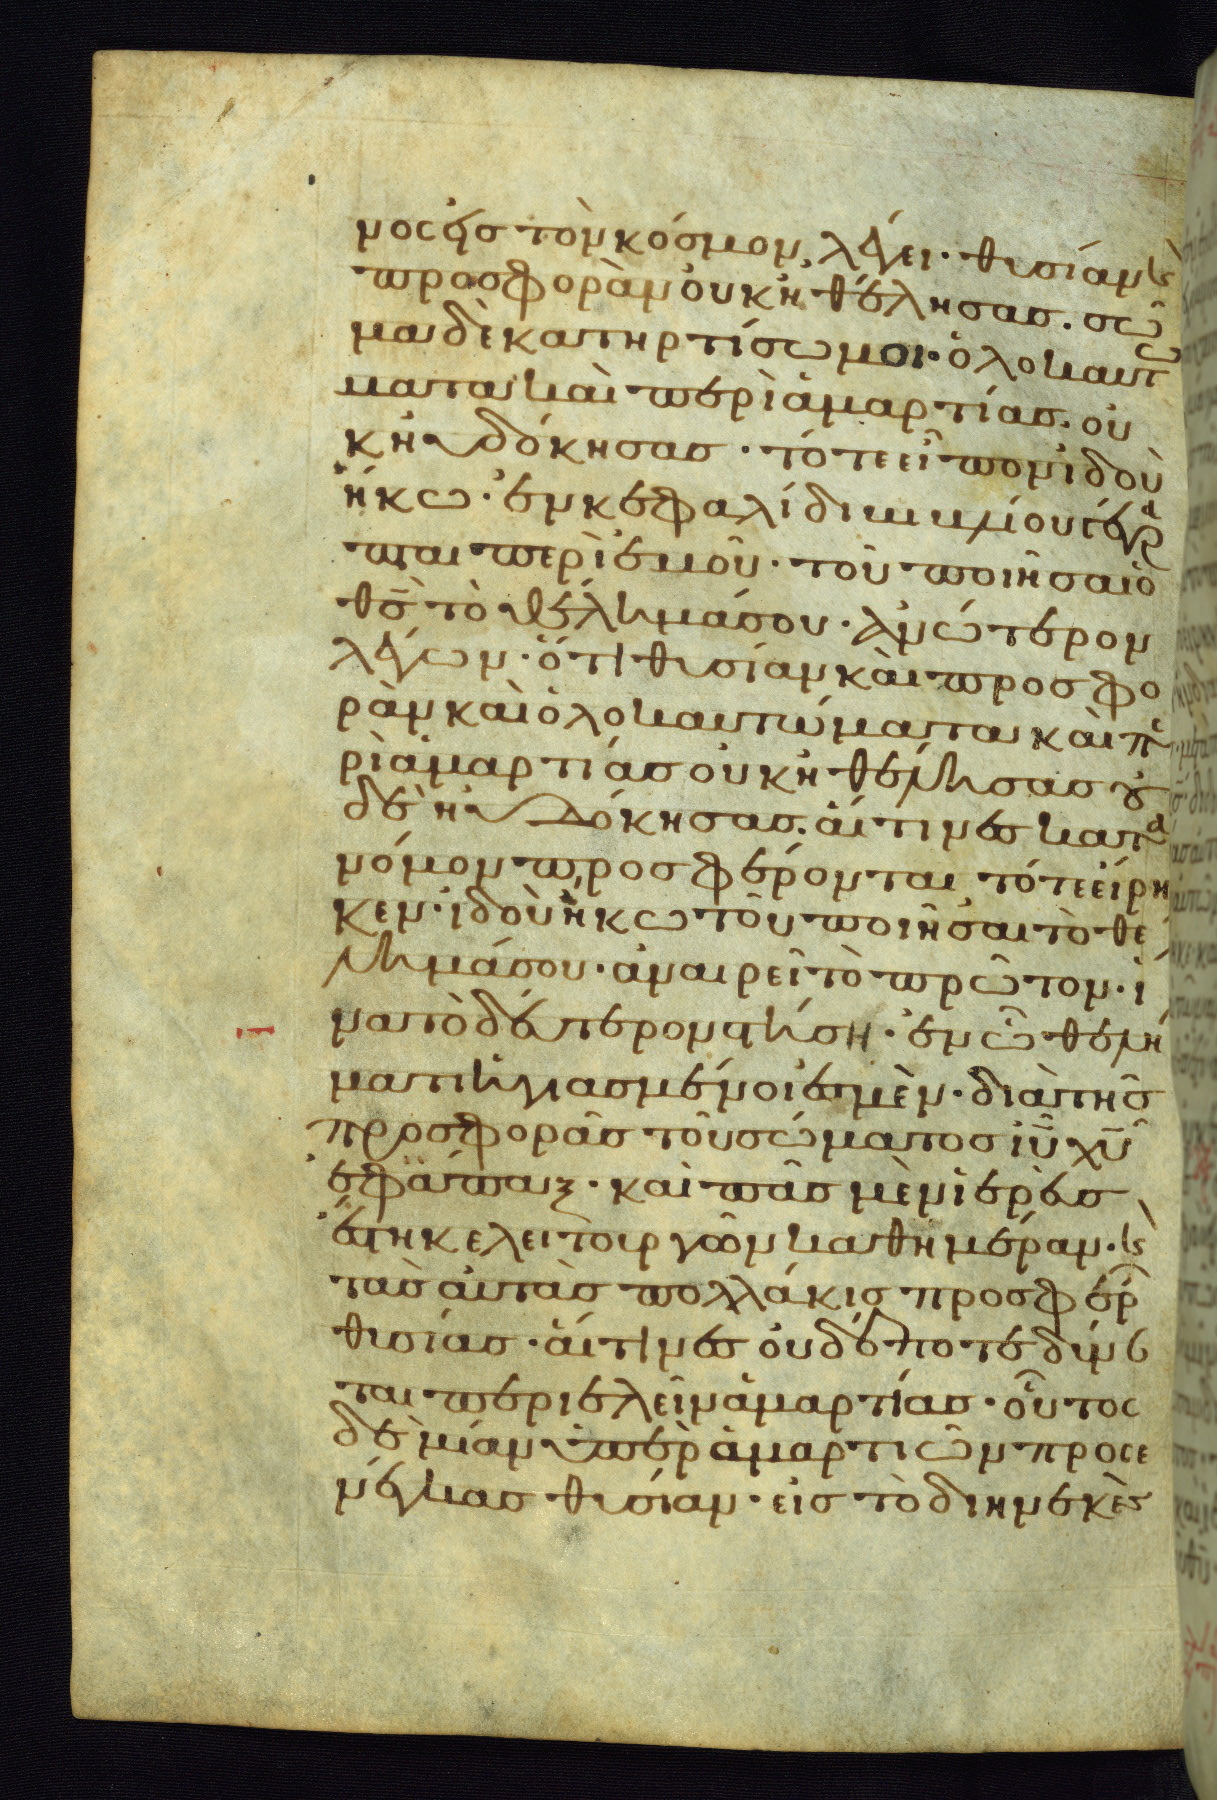 νος εἰς τὸν κόσμον λέγει· θυσίαν κ(αὶ)
προσφορὰν οὐκ ἠθέλησας. σῶ
μα δὲ κατηρτίσω μοι· ὁλοκαυτώ
ματα καὶ περὶ ἁμαρτίας. οὐ
κ ηὐδόκησας · τότε εἶπον ἰδοὺ
ἥκω· ἐν κεφαλίδι βιβλίου γέγρα
πται περὶ ἐμοῦ· τοῦ ποιῆσαι ὁ
θ̅ς̅ τὸ θέλημά σου· ἀνώτερον
λέγων· ὅτι θυσίαν καὶ προσφο
ρὰν καὶ ὁλοκαυτώματα καὶ πε
ρὶ ἁμαρτίας οὐκ ἠθέλησας οὐ
δὲ ηὐδόκησας. αἵτινες κατὰ
νόμον προσφέρονται τότε εἴρη
κεν· ἰδοὺ ἥκω τοῦ ποιῆσαι τὸ θέ
λημά σου· ἀναιρεῖ τὸ πρῶτον· ἵ
να τὸ δεύτερον στήσῃ· ἐν ᾧ θελή
ματι ἡγιασμένοι ἐσμὲν· διὰ τῆς
προσφορᾶς τοῦ σώματος ἰ̅υ̅ χ̅υ̅
ἐφάπαξ· καὶ πᾶς μὲν ἱερεὺς
ἕστηκε λειτουργῶν καθημέραν· κ(αὶ)
τὰς αὐτὰς πολλάκις προσφέρ(ων)
θυσίας· αἵτινες οὐδέποτε δύνα
ται περιελεῖν ἁμαρτίας· οὗτος
δὲ μίαν ὑπὲρ ἁμαρτιῶν προσε
νέγκας θυσίαν· εἰς τὸ διηνεκὲς